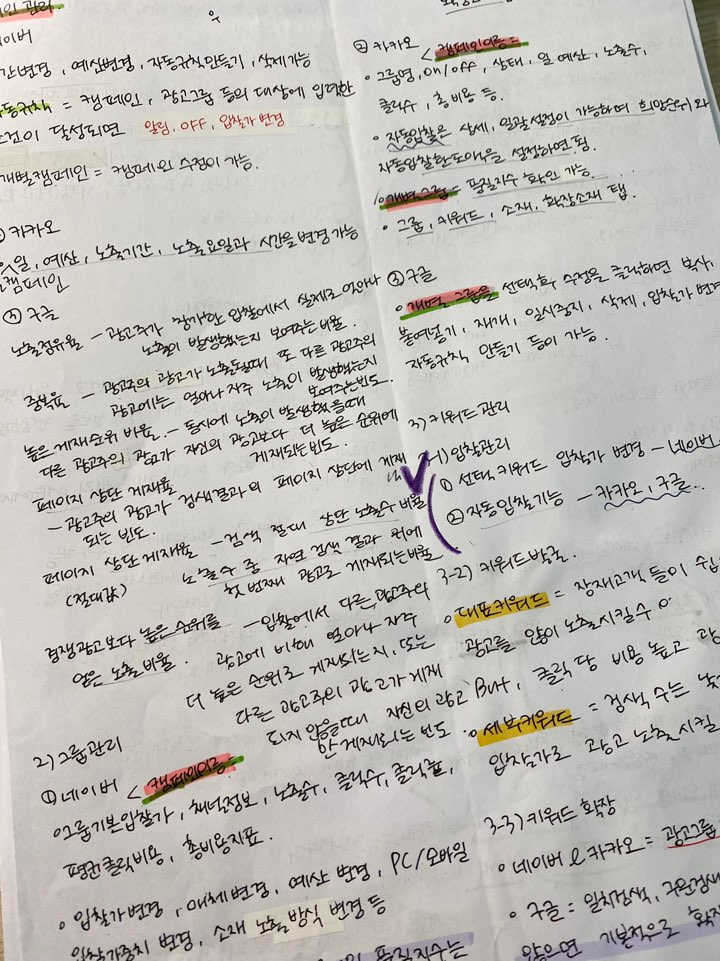 인 관리
이버
간변경, 예산변경, 자동규칙만들기, 삭제가능
동규칙 = 캠페인, 광고그룹 등의 대상에 입력한
조건이 달성되면 알림, OFF, 입찰가변경
개별캠페인 = 캠페인 수정이 가능.
카카오
일, 예산, 노출기간, 노출요일과 시간을 변경 가능
캠페인
③ 구글
노출점유율 - 광고주가 참가한 입찰에서 실제로 얼마나
노출이 발생했는지 보여주는 비율.
중복율 - 광고주의 광고가 노출될때 또 다른 광고주의
광고에는 얼마나 자주 노출이 발생했는지
보여주는빈도.
높은 게재순위 비율. - 동시에 노출이 발생했을때
다른 광고주의 광고가 자신의 광고보다 더 높은 순위에
게재되는빈도.
페이지 상단 게재율
- 광고주의 광고가 검색결과의 페이지 상단에 게재
되는 빈도.
페이지 상단게재율 - 검색 절대 상단 노출수 비율
(절대값) 노출수 중 자연 검색 결과 위에
첫 번째 광고로 게재되는비율
경쟁광고보다 높은순위를 - 입찰에서 다른광고주의
얻은 노출비율. 광고에 비해 얼마나 자주
더 높은 순위로 게재되는지, 또는
다른 광고주의 광고가 게재
되지 않을때 자신의 광고
만 게재되는 빈도.
2) 그룹관리
① 네이버 < 캠페인이름 =
그룹기본입찰가, 채널정보, 노출수, 클릭수, 클릭률,
평균클릭비용, 총비용지표.
입찰가변경, 매체변경, 예산 변경, PC/모바일
입찰가중치 변경, 소재 노출방식 변경 등
품질지수는
② 카카오 < 캠페인이름 =
그룹명, ON/OFF, 상태, 일 예산, 노출수,
클릭수, 총비용 등.
자동입찰은 상세, 일괄설정이 가능하며 희망순위와
자동입찰한도액을 설정하면 됨.
개별그룹 = 품질지수 확인 가능.
그룹, 키워드, 소재, 확장소재 탭.
③ 구글
개별 그룹을 선택후 수정을 클릭하면 복사,
붙여넣기, 재개, 일시중지, 삭제, 입찰가 변경
자동규칙 만들기 등이 가능.
3) 키워드관리
3-1) 입찰관리
① 선택키워드 입찰가 변경 - 네이버
② 자동입찰기능 - 카카오, 구글.
3-2) 키워드발굴.
대표키워드 = 잠재고객들이 쉽
광고를 많이 노출시킬수
But, 클릭 당 비용 높고 광
세부키워드 = 검색 수는 낮
입찰가로 광고 노출시킬
3-3) 키워드 확장
네이버 & 카카오 = 광고그룹
구글 = 일치검색, 구문검색
않으면 기본적으로 확장